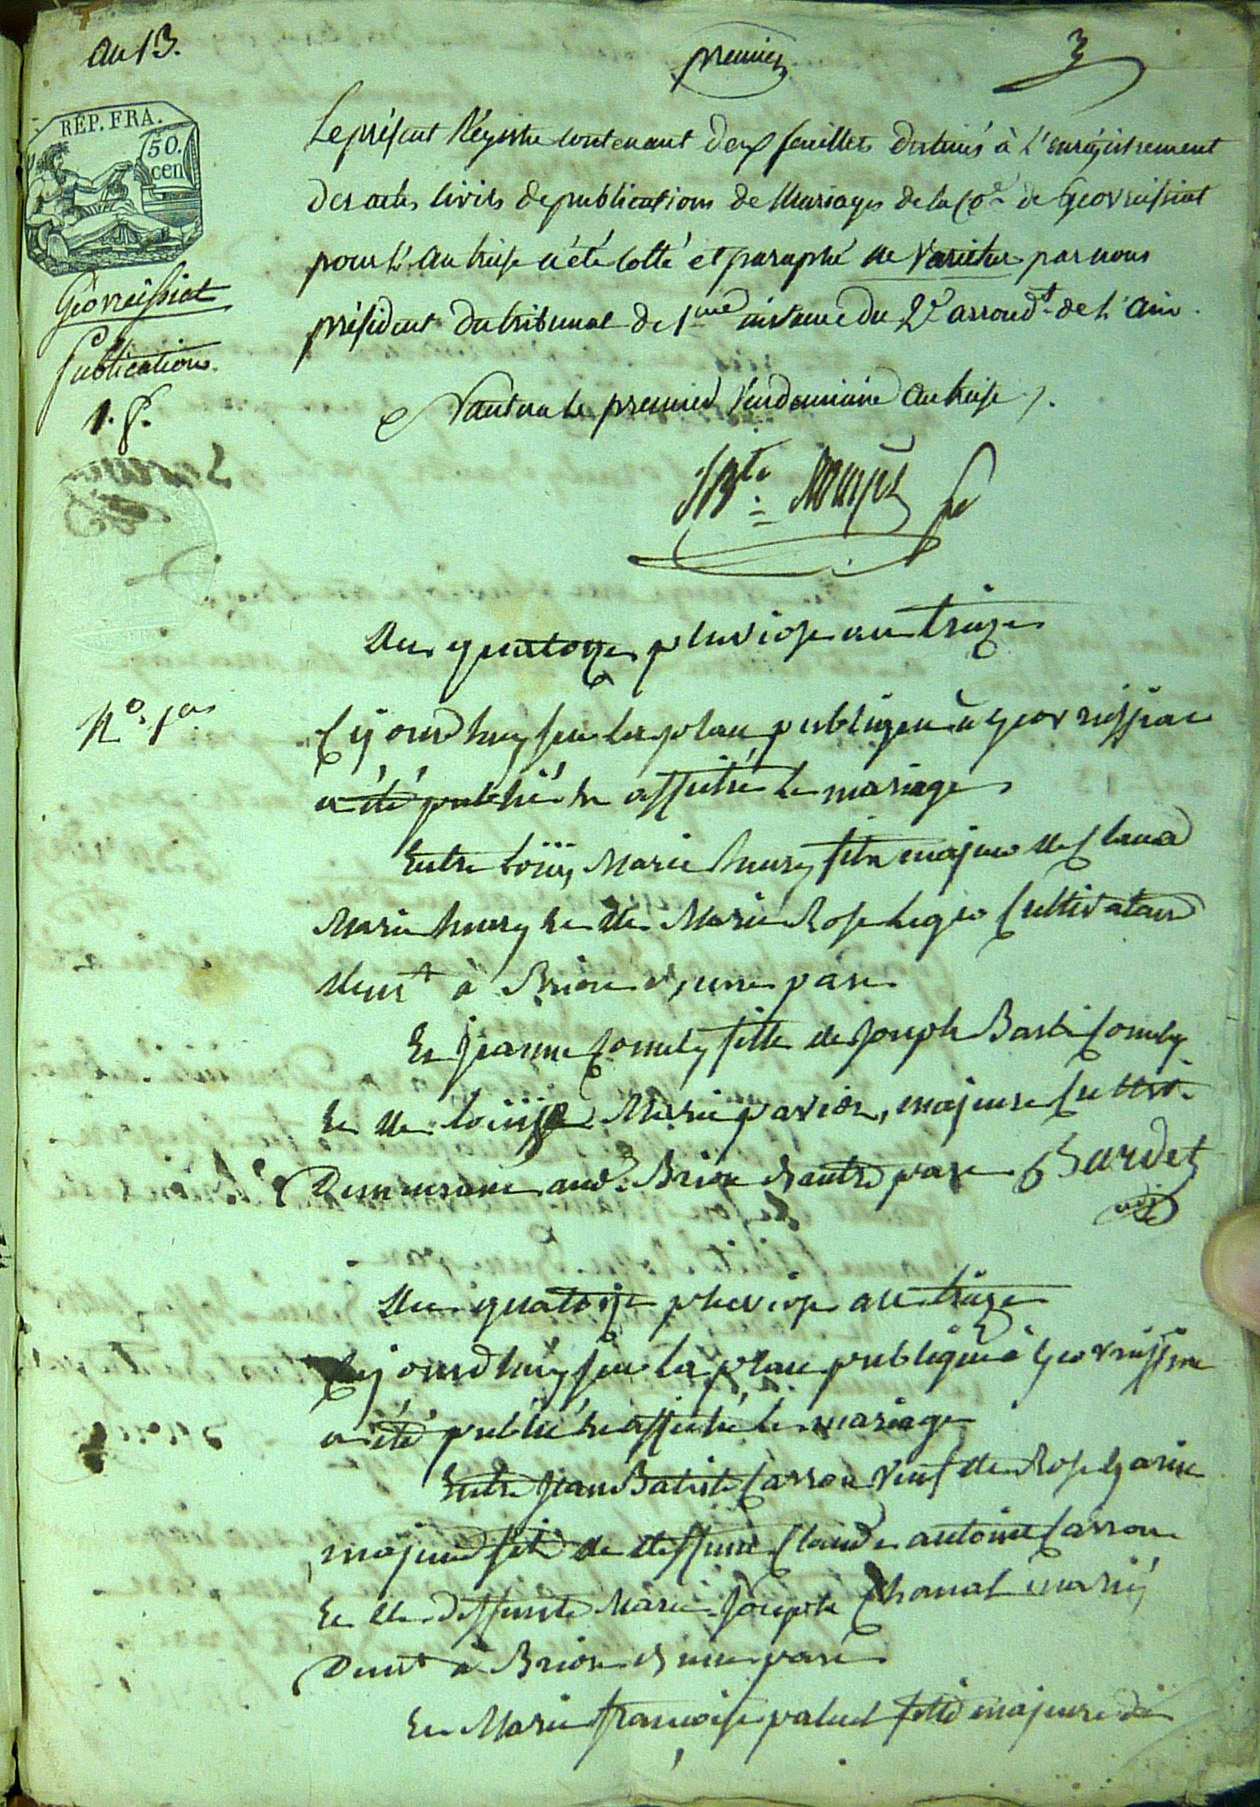 an 13.
premier
3
REP. FRA.
50.
cen
Le présent Régistre contenant deux feuillets destinés à l'enrégistrement
des actes civils de publications de Mariages de la Coe. de Geovreissiat
pour l'an treise a été cotté et paraphé ne varietur par nous
président du tribunal de 1ere instance du 2e arrondt. de l'ain.
Geovreissiat
Publications.
1. f.
Nantua le premier Vendemiaire an treise
Du quatorze pluviose an treize
No. 1er
Cejourdhuy sur la place publique à Geovreissiat
a été publié et affiché le mariage
Entre Louis Marie huery fils majeur de Claude
Marie huery et de Marie Rose Leger Cultivateur
demt à Brion d'une part
Et jeanne Comely fille de joseph Barthe Comely
et de Louise Marie pavion, majeure Cultiv.
Demeurant aud. Brion d'autre part Bardet
Du quatorze pluviose an treize
Cejourdhuy sur la place publique à Geovreissiat
a été publié et affiché le mariage
Entre Jean Batiste Carron veuf de Rose
majeur fils de deffunt Claude antoine Carron
et de deffunte Marie Josephe Chanal
Demt à Brion d'une part
Et Marie françoise palud fille majeure de